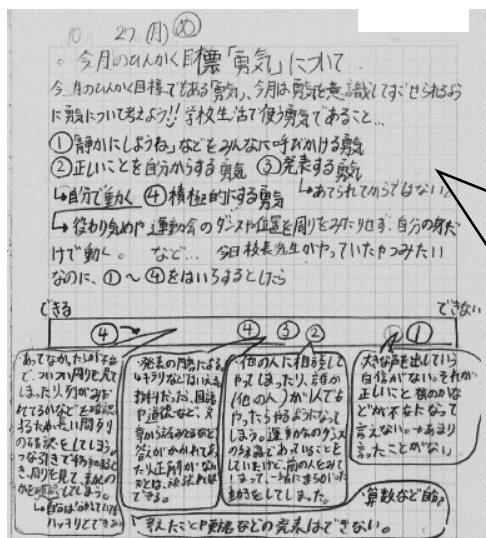 10 27(月) め
今月のひんかく目標「勇気」について…
今月のひんかく目標でもある「勇気」、今月は勇気を意識してすごせられるよう
に勇気について考えよう!! 学校生活で使う勇気であること…
①「静かにしようね」などをみんなに呼びかける勇気
②正しいことを自分からする勇気 ③発表する勇気
↳自分で動く ④積極的にする勇気 ↳あてられてからではない。
↳役わり決めや運動会のダンスや位置を周りをみたりせず、自分の身だ
けで動く。 など… 今日校長先生がやっていたやつみたい
なのに、①~④をはいちするとしたら
できる できない
④→ ④ ③ ② ①
あってなかしたらが不安
で、ついつい周りを見て
しまったり、列がみだ
れてるかなどを確認
するため、長い間列
の確認をしてしまう。
つな引きで移動すると
き、周りを見て、まわりの
かを確認してしまう。
↳自分は分かっていても
ハッキリとできない
発表の内容による。
4キラリなどはいえる
教科だったら、国語
や道徳など、文
章から読みとるなど
答えがかかれてあっ
たり正解がない
文とは、頑張れば
できる。
他の人に相談して
やってしまったり、誰か
(他の人)が1人でも
やったらやるようになって
しまう。運動会のダンス
の練習であっていることを
していたけど、前の人をみて
しまって、一緒にまちがった
動きをしてしまった。
大きな声を出していう
自信がない。それが
正しいこと 何のかな
どが不安になって
言えない。→あまり
言ったことがない
算数など自分の
考えたことや英語などの発表はできない。